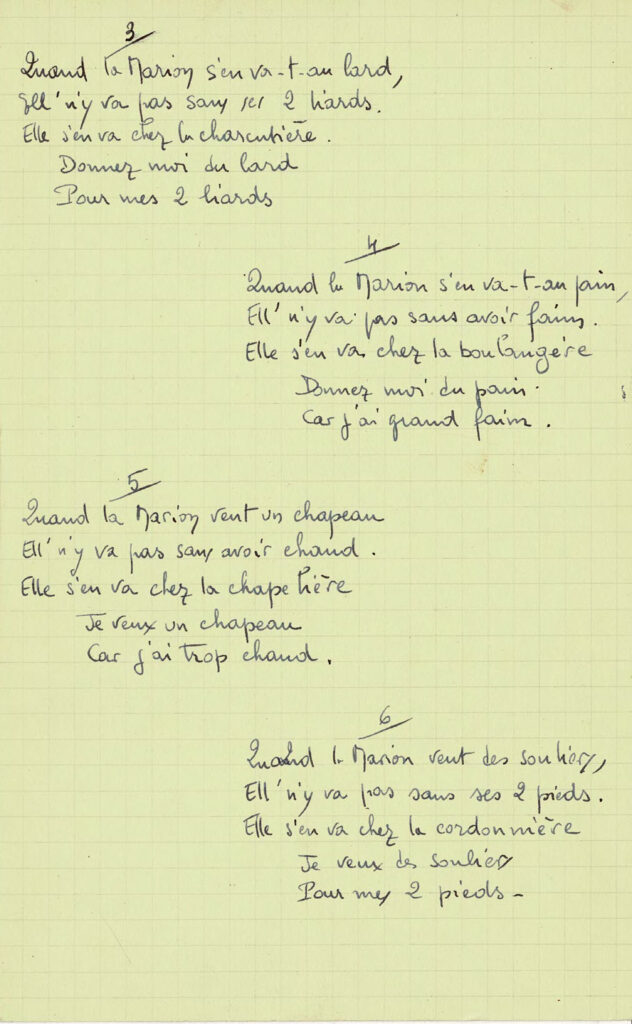 3
Quand la Marion s'en va-t-au lard,
Ell' n'y va pas sans ses 2 liards.
Elle s'en va chez la charcutière.
Donnez moi du lard
Pour mes 2 liards
4
Quand la Marion s'en va-t-au pain,
Ell' n'y va pas sans avoir faim.
Elle s'en va chez la boulangère
Donnez moi du pain.
Car j'ai grand faim.
5
Quand la Marion veut un chapeau
Ell' n'y va pas sans avoir chaud.
Elle s'en va chez la chapelière
Je veux un chapeau
Car j'ai trop chaud.
6
Quand la Marion veut des souliers,
Ell' n'y va pas sans ses 2 pieds.
Elle s'en va chez la cordonnière
Je veux des souliers
Pour mes 2 pieds -